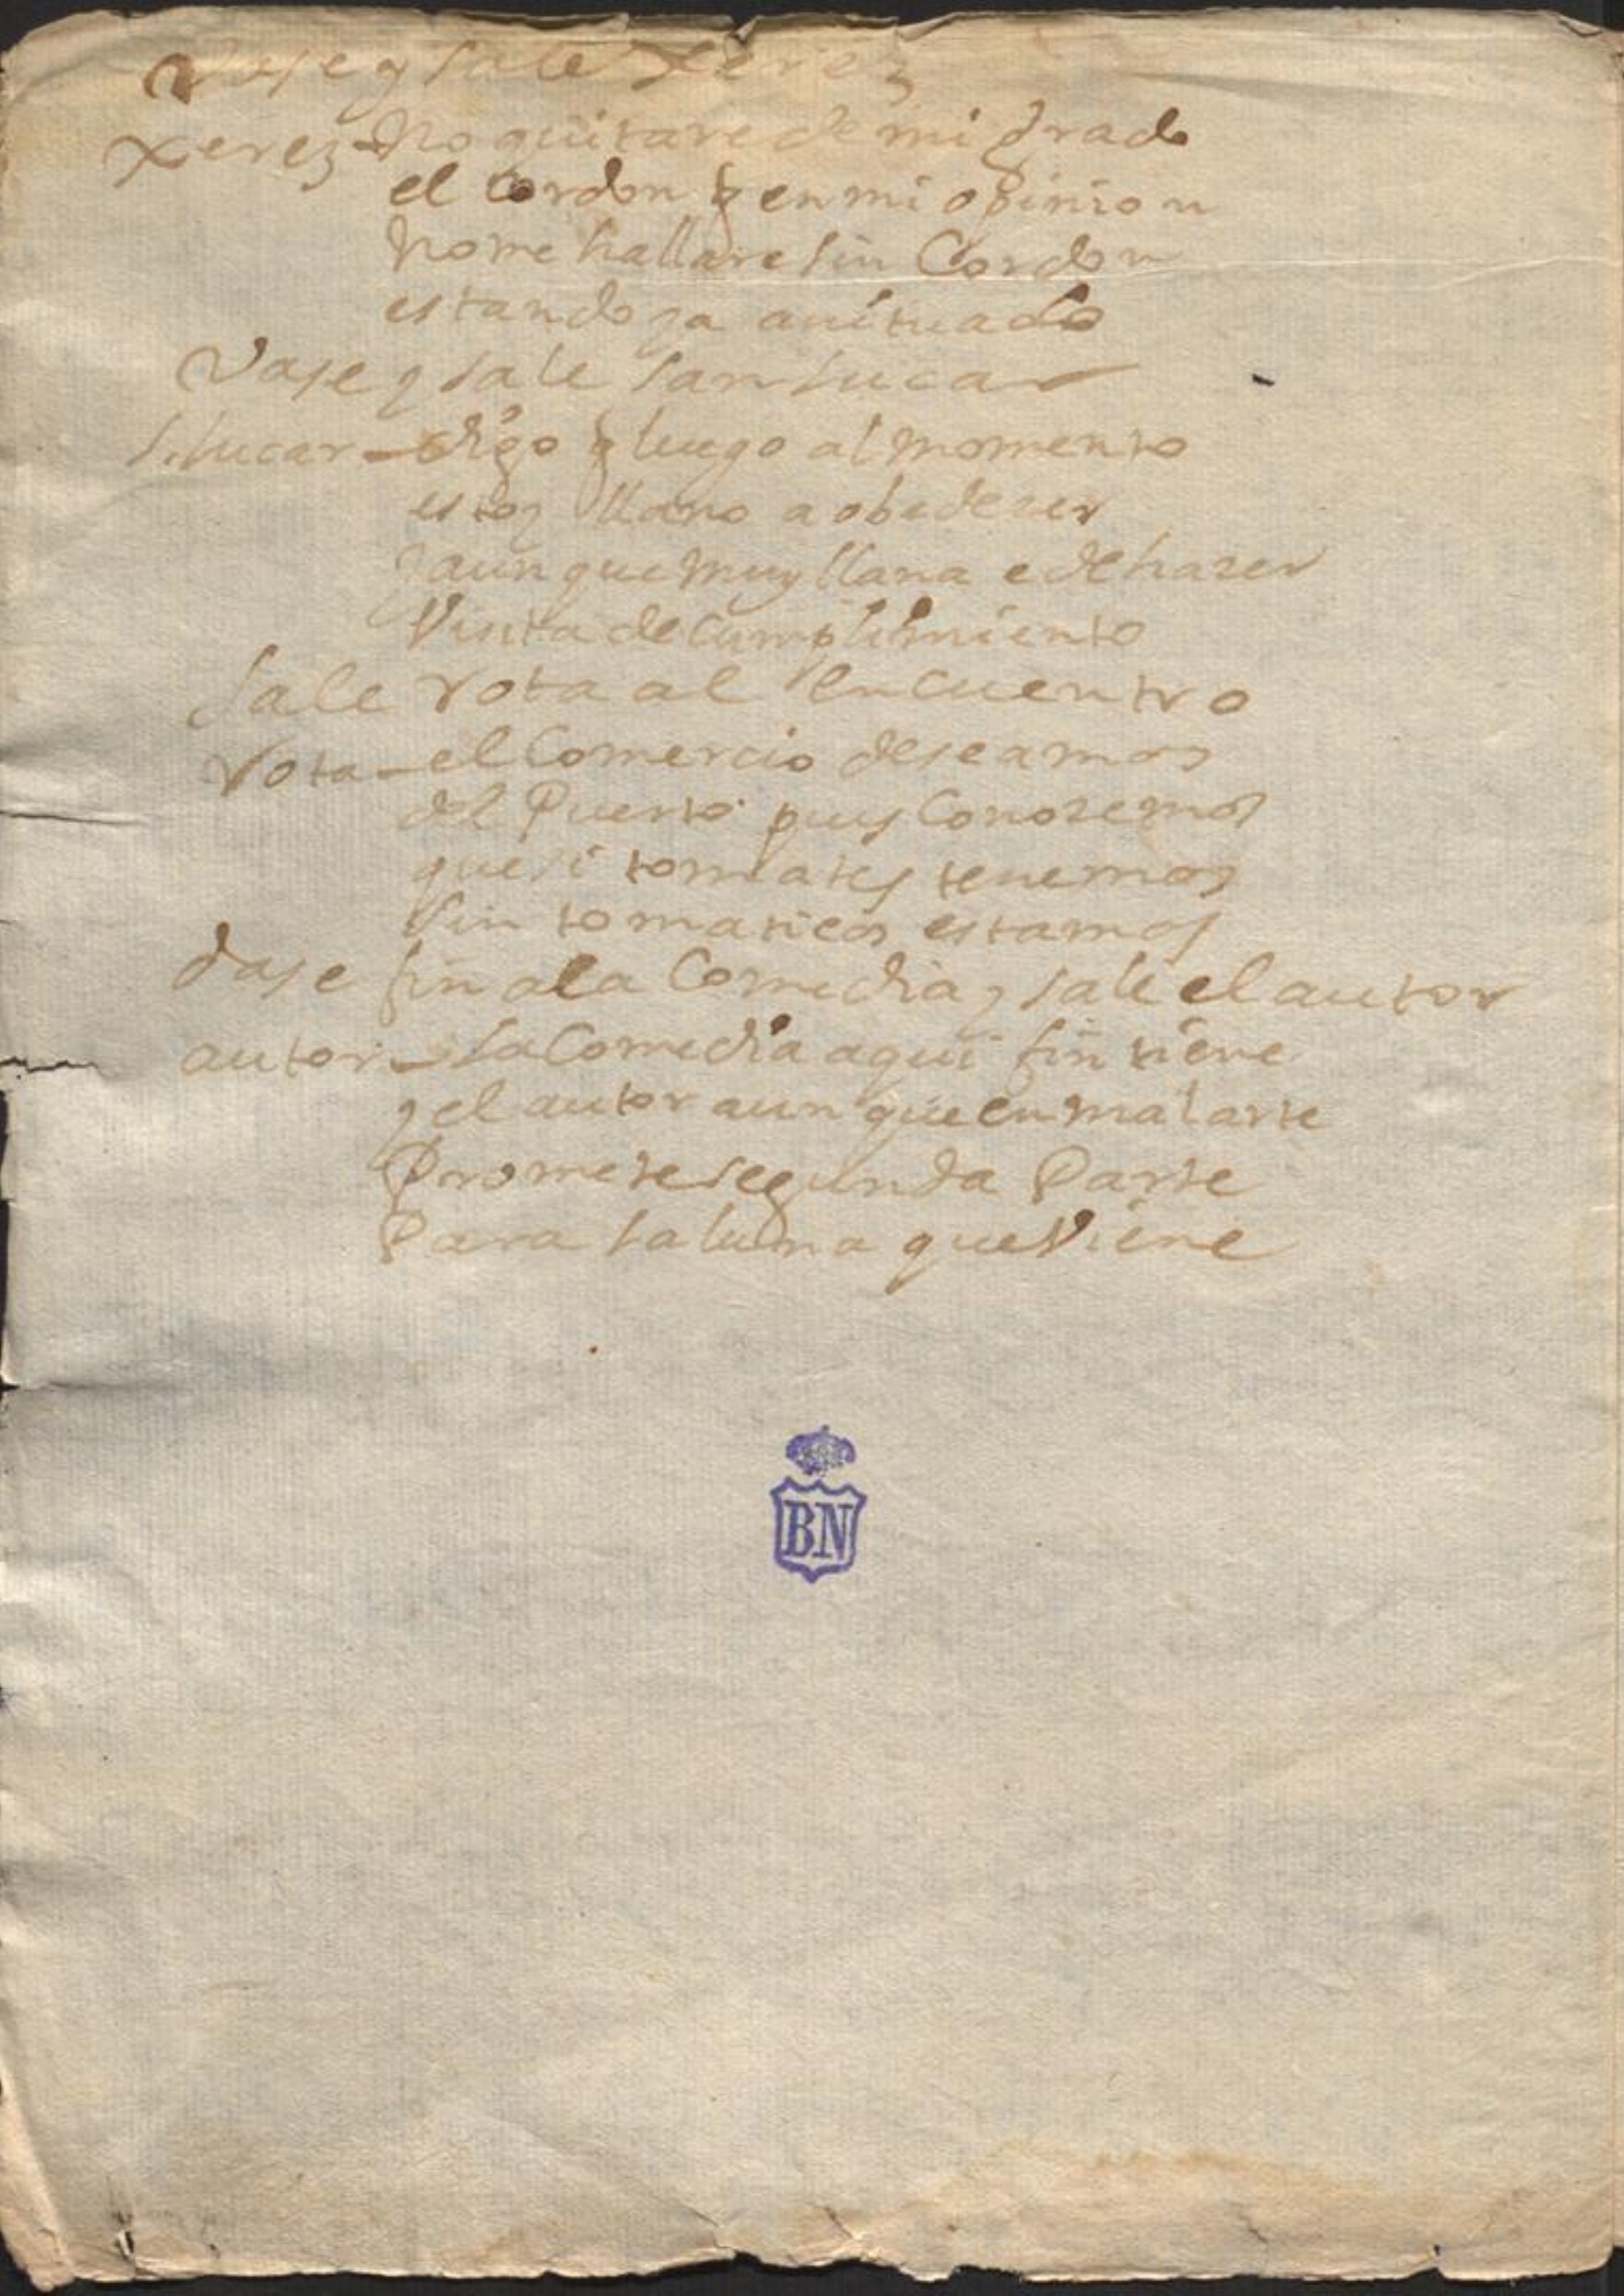 Vase y sale Xerez
Xerez - No quitare de mi grado
el Cordon q en mi opinion
no me hallare sin Cordon
estando ya auituado
Vase y sale san lucar
S. lucar - digo q luego al momento
estoy llano a obedezer
y aunque muy llana e de hazer
Visita de Cumplimiento
Sale rota al encuentro
rota - el Comercio deseamos
del Puerto pues Conozemos
que si tomates tenemos
sin tomaticos estamos
dase fin a la Comedia y sale el autor
autor - la Comedia aqui fin tiene
y el autor aunque en mal arte
Promete segunda Parte
Para la luna que Viene
BN